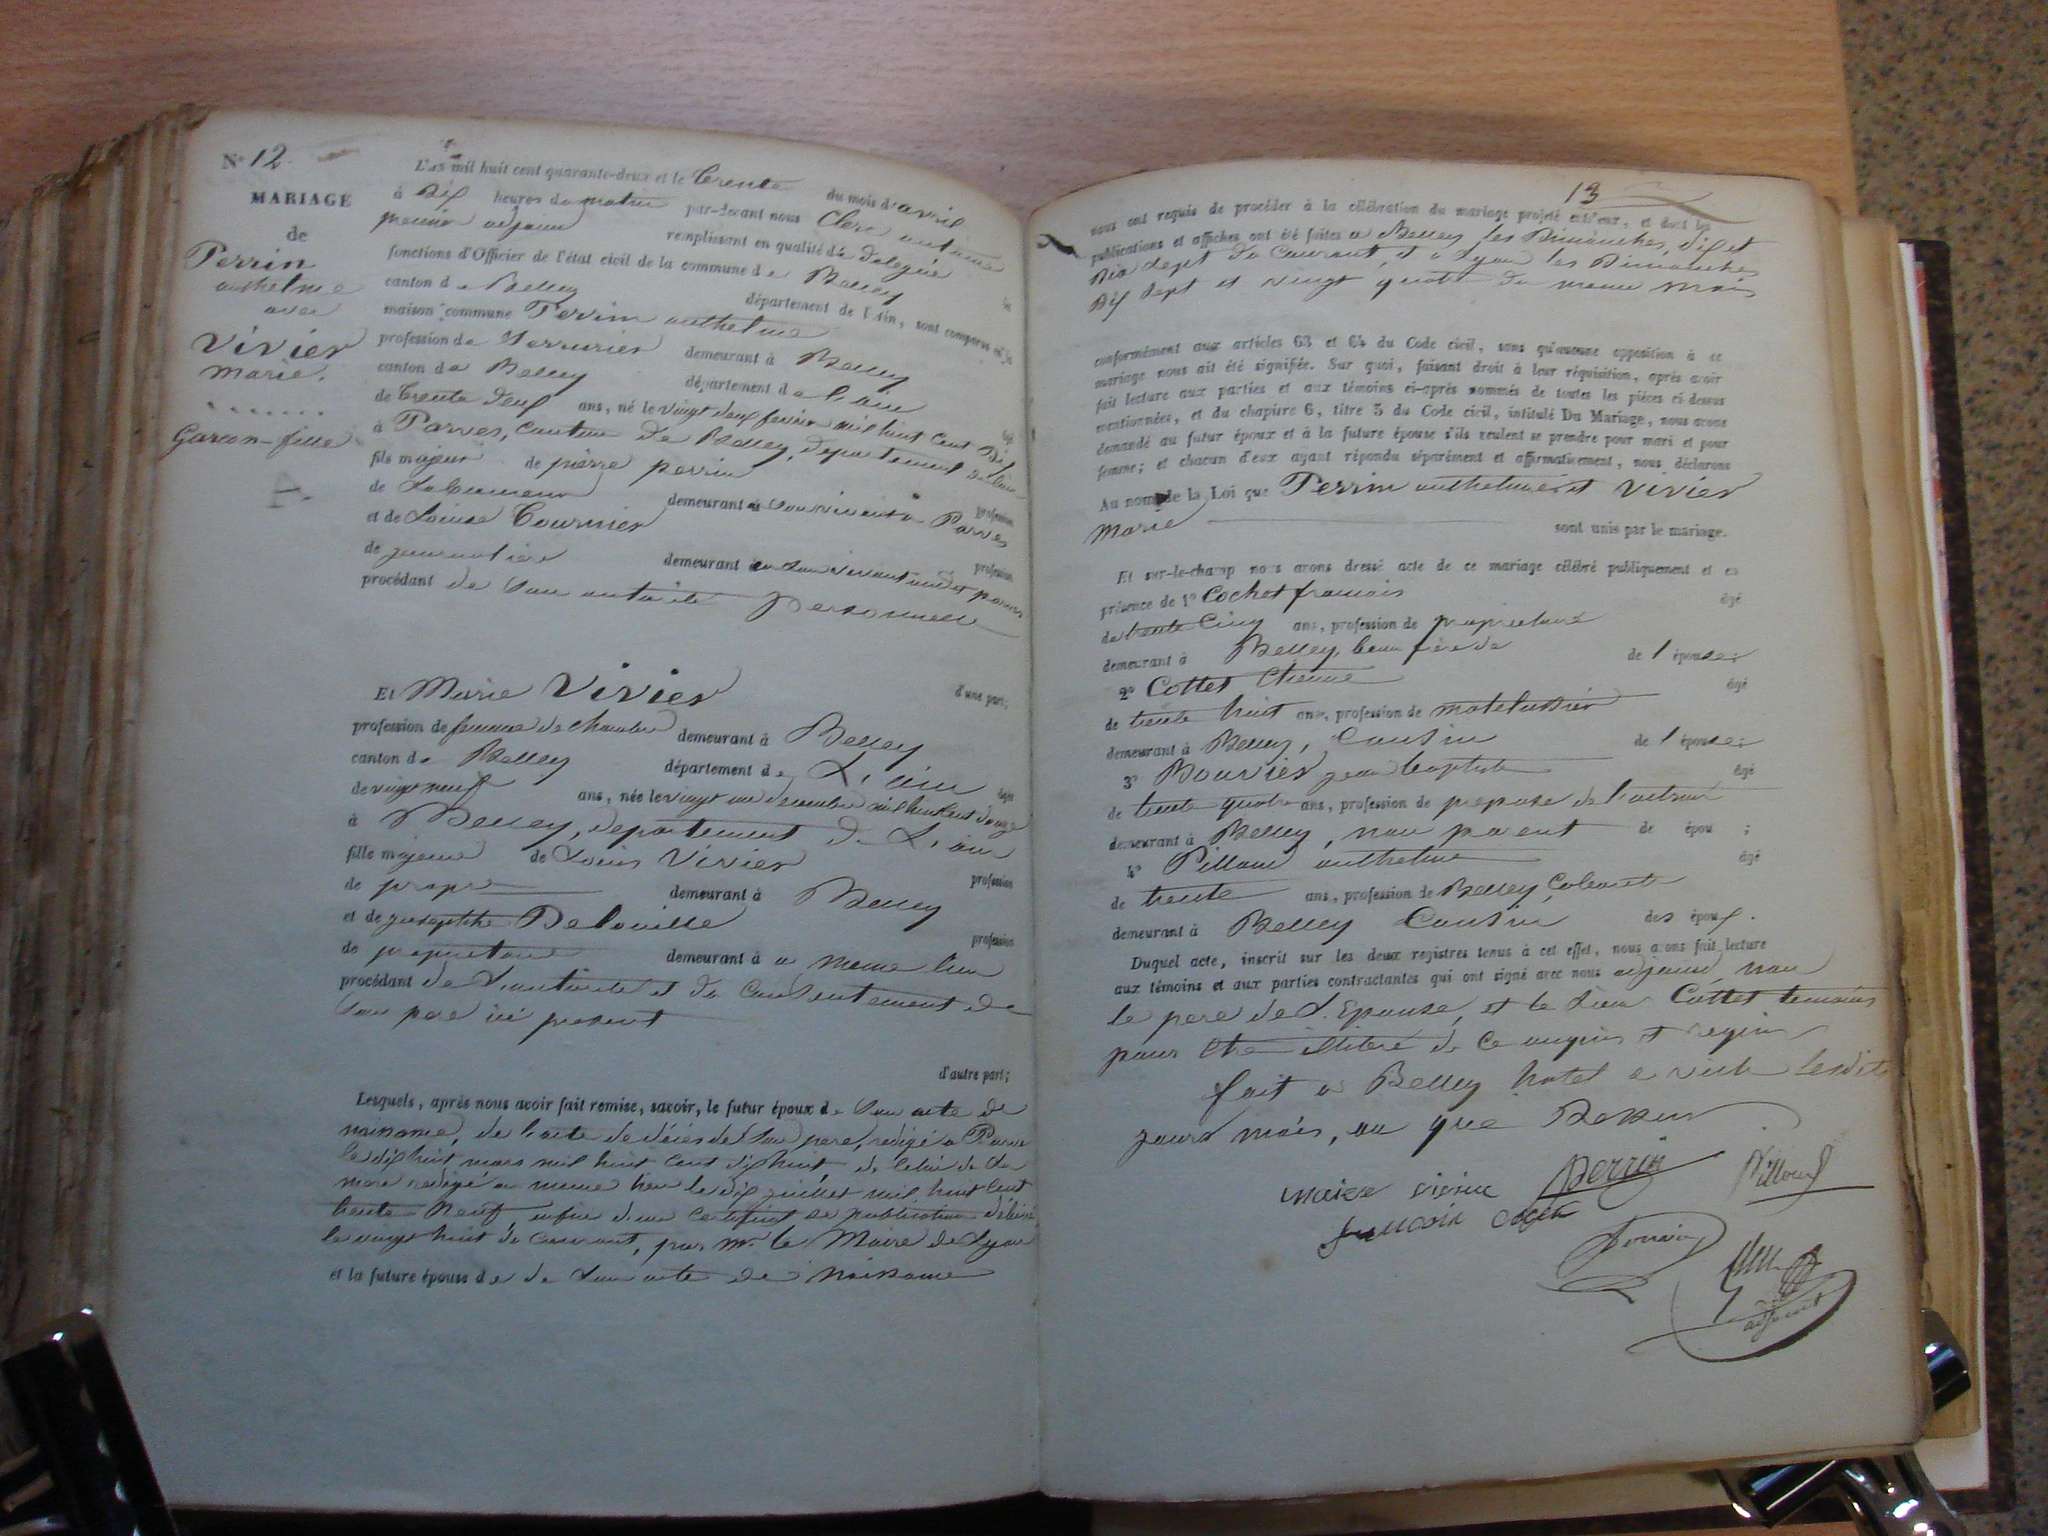 N° 12
MARIAGE
de
Perrin
anthelme
avec
Vivier
marie.
Garcon-fille
L'an mil huit cent quarante-deux et le trente du mois d'avril
à dix heures du matin par-devant nous Clerc antoine
premier adjoint remplissant en qualité de délégué
fonctions d'Officier de l'état civil de la commune de Belley
canton de Belley département de l'Ain, sont comparus en la
maison commune Perrin anthelme
profession de Serrurier demeurant à Belley
canton de Belley département de l'ain âgé
de trente deux ans, né le vingt deux fevrier mil huit cent dix
à Parves, canton de Belley, departement de l'ain
fils majeur de pierre perrin profession
de Laboureur demeurant à son vivant à Parves
et de Louise Tournier profession
de journaliere demeurant en son vivant audit parves
procédant de son autorité personnelle
d'une part;
Et Marie Vivier
profession de femme de chambre demeurant à Belley
canton de Belley département de L'ain âgée
de vingt neuf ans, née le vingt un decembre mil huit cent douze
à Belley, departement de L'ain
fille majeure de Louis Vivier profession
de propre demeurant à Belley
et de josephte Delouille profession
de propriétaire demeurant à a meme lieu
procédant de L'autorité et du consentement de
son pere ici present
d'autre part;
Lesquels, après nous avoir fait remise, savoir, le futur époux de son acte de
naissance, de l'acte de décès de son pere, redigé a Parves
le dix huit mars mil huit cent dix huit, de celui de sa
mere redigé au meme lieu le dix juillet mil huit cent
trente neuf, enfin d'un certificat de publication délivré
le vingt huit du courant, par mr. le Maire de Lyon
et la future épouse de de son acte de naissance
13
nous ont requis de procéder à la célébration du mariage projeté entr'eux, et dont les
publications et affiches ont été faites a Belley les Dimanches, dix et
Dix sept du Courant, et a Lyon les Dimanches
Dix sept et vingt quatre du meme mois
conformément aux articles 63 et 64 du Code civil, sans qu'aucune opposition à ce
mariage nous ait été signifiée. Sur quoi, faisant droit à leur réquisition, après avoir
fait lecture aux parties et aux témoins ci-après nommés de toutes les pièces ci-dessus
mentionnées, et du chapitre 6, titre 5 du Code civil, intitulé Du Mariage, nous avons
demandé au futur époux et à la future épouse s'ils veulent se prendre pour mari et pour
femme; et chacun d'eux ayant répondu séparément et affirmativement, nous déclarons
Au nom de la Loi que Perrin anthelme et Vivier
Marie sont unis par le mariage.
Et sur-le-champ nous avons dressé acte de ce mariage célébré publiquement et en
présence de 1° Cochet francois âgé
de trente Cinq ans, profession de propriétaire
demeurant à Belley, beau frère de de l'épouse;
2° Cottet Etienne âgé
de trente huit ans, profession de matelassier
demeurant à Belley, Cousin de l'épouse;
3° Bouvier jean baptiste âgé
de trente quatre ans, profession de préposé de l'octroi
demeurant à Belley, non parent de épou ;
4° Pilloud anthelme âgé
de trente ans, profession de Belley, Cabaretier
demeurant à Belley Cousin des époux.
Duquel acte, inscrit sur les deux registres tenus à cet effet, nous avons fait lecture
aux témoins et aux parties contractantes qui ont signé avec nous adjoint, non
le pere de L'Epouse, et le Sieur Cottet temoins
pour Etre illitéré de ce enquis et requis
fait a Belley hotel de ville lesdits
jours mois, an que Dessus
marie vivier Perrin Pilloud
francoix cochet
Bouvier
adjoint